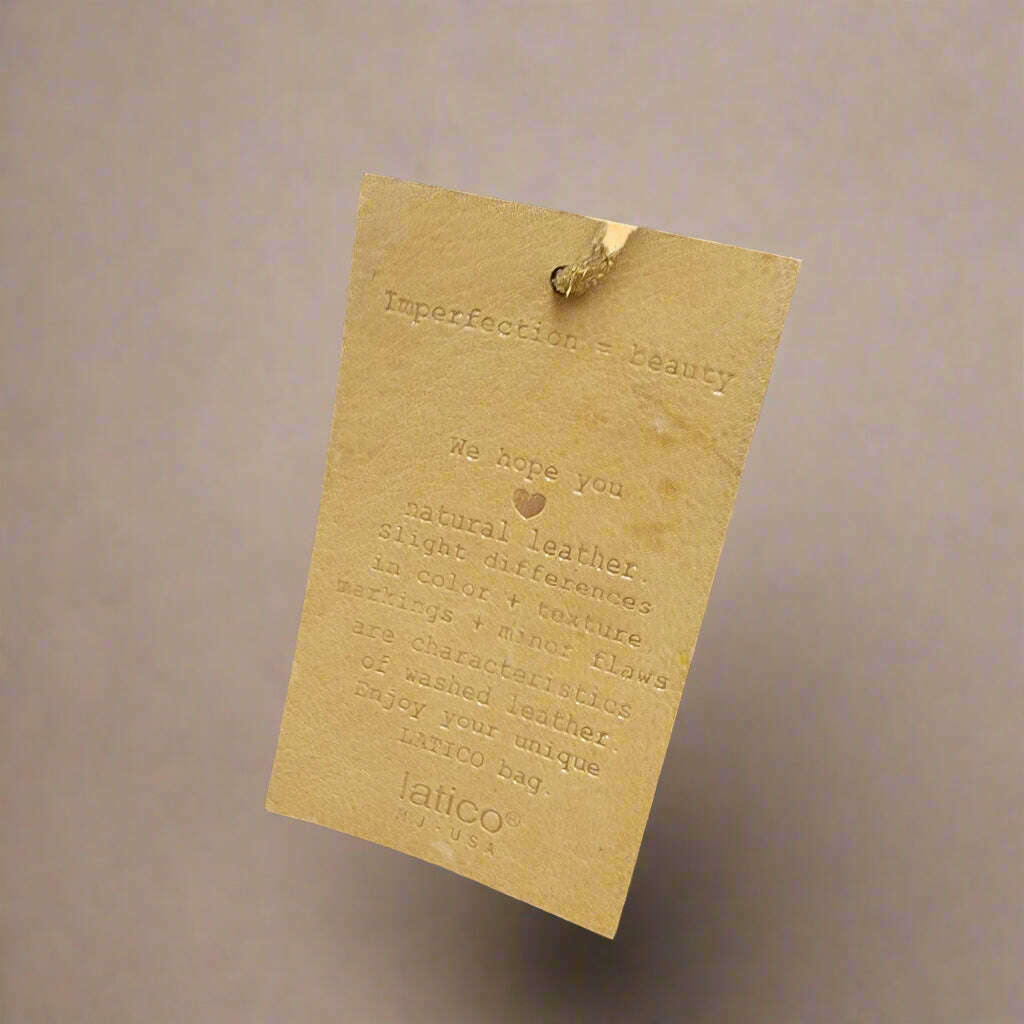 Imperfection = beauty
We hope you
♥
natural leather.
Slight differences
in color + texture,
markings + minor flaws
are characteristics
of washed leather.
Enjoy your unique
LATICO bag.
latico®
NJ·USA